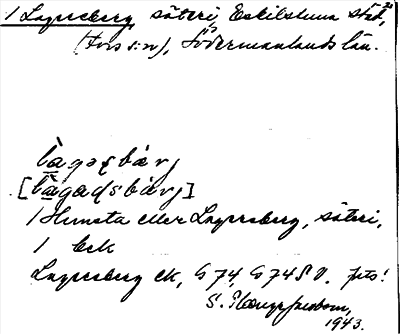 1 Lagersberg, säteri, Eskilstuna stad,
(Fors s:n), Södermanlands län.
làgəʂbærj
[làgaɖsbàrj]
1 Humsta eller Lagersberg, säteri,
1 bek
Lagersberg ek, G 74, G 74 S V.
1943.